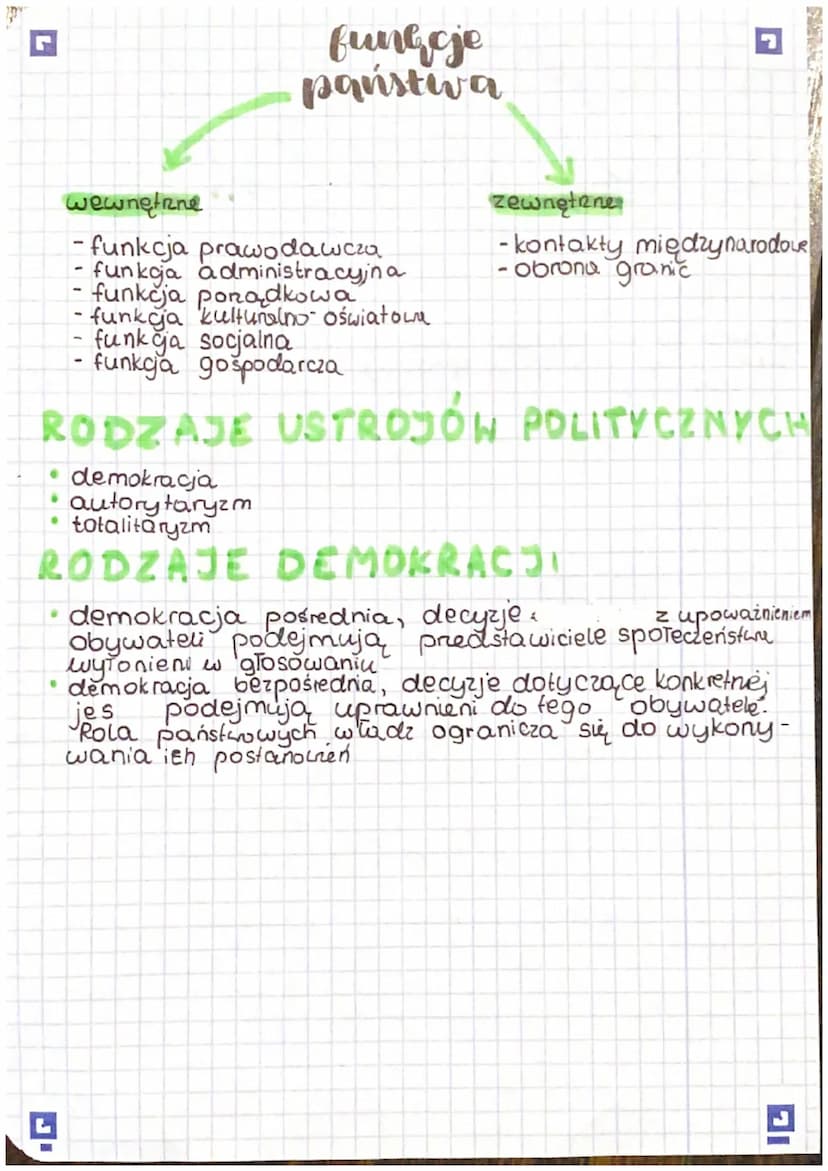 funkcje
państwa
wewnętrzne
- funkcja prawodawcza
- funkcja administracyjna
- funkcja porządkowa
- funkcja kulturalno-oświatowa
- funkcja socjalna
- funkcja gospodarcza
zewnętrzne
- kontakty międzynarodowe
- obrona granic
RODZAJE USTROJÓW POLITYCZNYCH
• demokracja
• autorytaryzm
• totalitaryzm
RODZAJE DEMOKRACJI
• demokracja pośrednia, decyzje z upoważnieniem
obywateli podejmują przedstawiciele społeczeństwa
wyłonieni w głosowaniu
• demokracja bezpośrednia, decyzje dotyczące konkretnej
jes podejmują uprawnieni do tego obywatele.
Rola państwowych władz ogranicza się do wykony-
wania ich postanowień